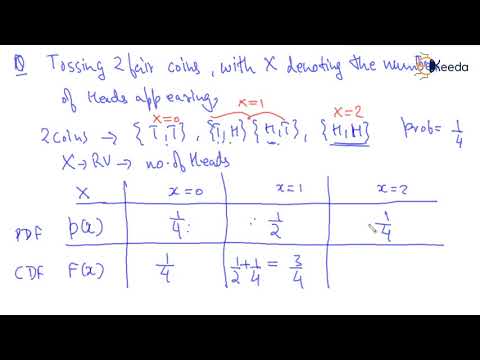 Q Tossing 2 fair coins, with X denoting the number
Ekeeda
of Heads appearing,
x=0 x=1 x=2
2 coins → {T,T}, {T,H} {H,T}, {H,H} prob= 1/4
X → RV → no. of Heads
X x=0 x=1 x=2
PDF p(x) 1/4 1/2 1/4
CDF F(x) 1/4 1/2+1/4 = 3/4